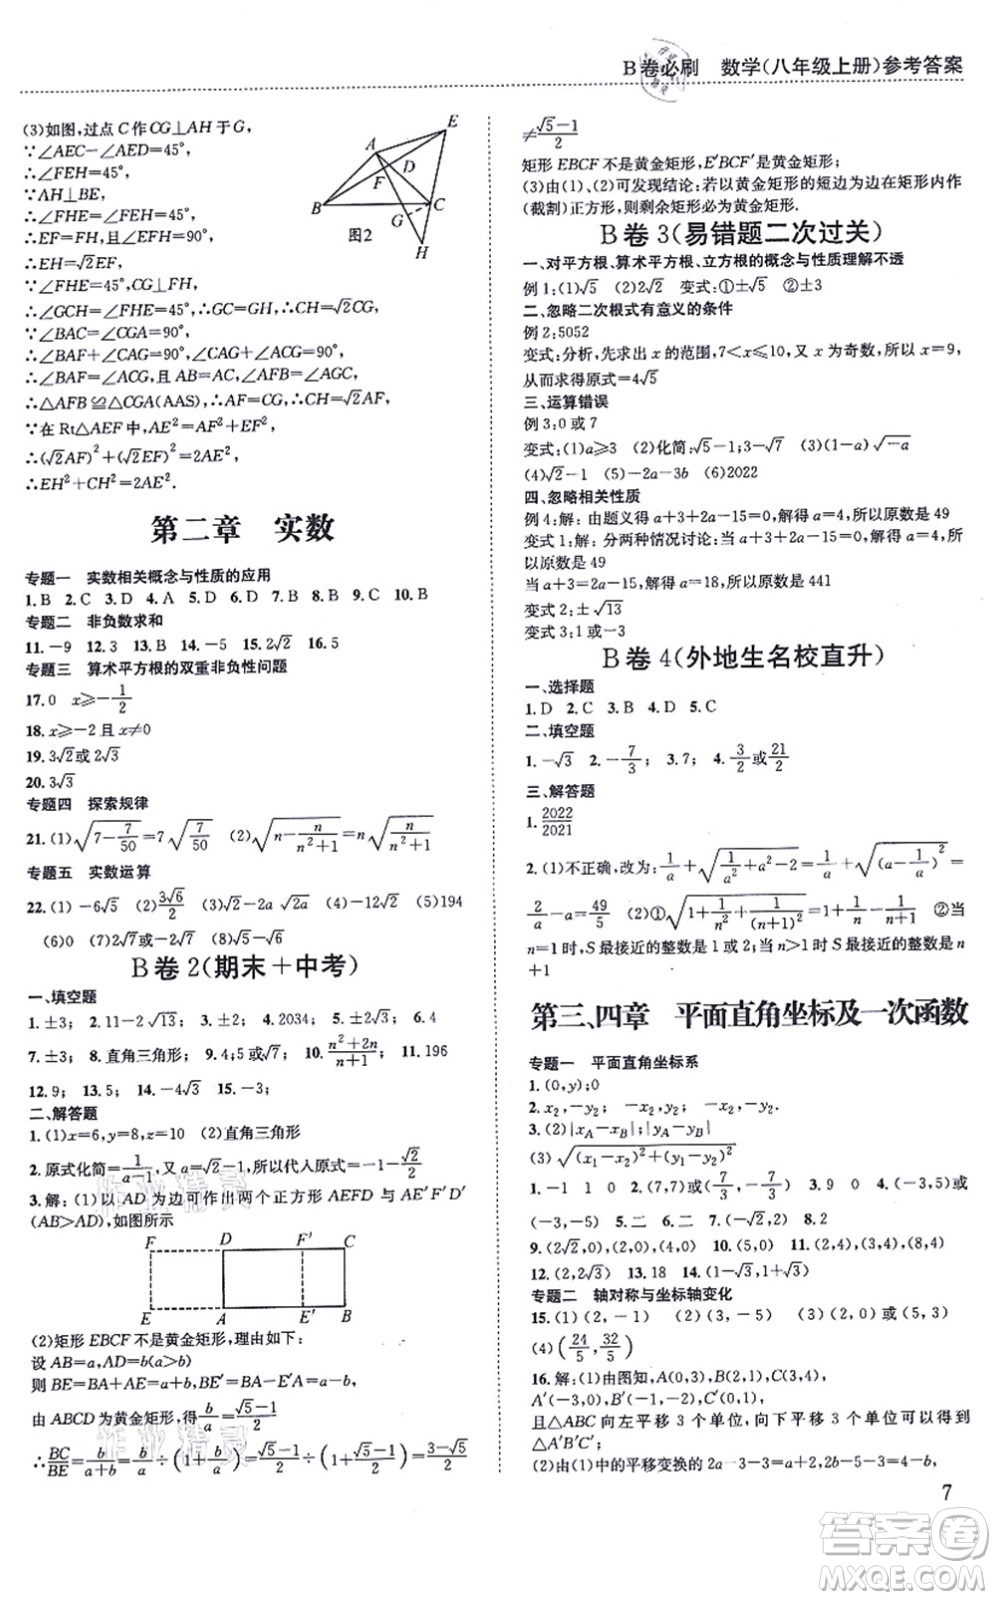 B卷必刷 数学(八年级上册)参考答案
(3)如图,过点C作CG⊥AH于G,
∵∠AEC-∠AED=45°,
∴∠FEH=45°,
∵AH⊥BE,
∴∠FHE=∠FEH=45°,
∴EF=FH,且∠EFH=90°,
∴EH=√2EF,
∵∠FHE=∠FEH=45°,CG∥FH,
∴∠GCH=∠FEH=45°,∴GC=GH,∴CH=√2CG,
∵∠BAC=∠CGA=90°,
∴∠BAF+∠CAG=90°,∠CAG+∠ACG=90°,
∴∠BAF=∠ACG,且AB=AC,∠AFB=∠AGC,
∴△AFB≌△CGA(AAS),∴AF=CG,∴CH=√2AF,
∵在Rt△AEF中,AE²=AF²+EF²,
∴(√2AF)²+(√2EF)²=2AE²,
∴EH²+CH²=2AE².
A
B
C
D
E
F
G
H
图2
第二章 实数
专题一 实数相关概念与性质的应用
1.B 2.C 3.D 4.A 5.D 6.B 7.D 8.B 9.C 10.B
专题二 非负数求和
11.-9 12.3 13.B 14.-5 15.2√2 16.5
专题三 算术平方根的双重非负性问题
17.0 x≥-1/2
18.x≥-2且x≠0
19.3√2或2√3
20.3√3
专题四 探索规律
21.(1)√(7-7/50)=7√(7/50) (2)√(n-n/(n²+1))=n√(n/(n²+1))
专题五 实数运算
22.(1)-6√5 (2)3√6/2 (3)√2-2a √2a (4)-12√3 (5)194
(6)0 (7)2√7或-2√7 (8)2√7
B卷2(期末+中考)
一、填空题
1.±3; 2.11-2√13; 3.-2; 4.2034; 5.±2√3; 6.4
7.±5; 8.直角三角形; 9.4;5或√7; 10.(n²+2n)/(n²+1); 11.196
12.9; 13.±5; 14.-4√3 15.-3;
二、解答题
1.(1)x=6,y=8,z=10 (2)直角三角形
2.原式化简=1/(a-1),又a=√2-1,所以代入原式=-1-√2/2
3.解:(1)以AD为边可作出两个正方形AEFD与AE′F′D′
(AB>AD),如图所示
F D F′ C
E A E′ B
(2)矩形EBCF不是黄金矩形,理由如下:
设AB=a,AD=b(a>b)
则BE=BA+AE=BA+AD=a+b
由ABCD为黄金矩形,得b/a=(√5-1)/2
∴BC/BE=b/(a+b)=b/a÷(1+b/a)=(√5-1)/2÷(1+(√5-1)/2)=(3-√5)/2
≠(√5-1)/2
矩形EBCF不是黄金矩形,E′BCF′是黄金矩形;
(3)由(1)、(2)可发现结论:若以黄金矩形的短边为边在矩形内作
(截割)正方形,则剩余矩形必为黄金矩形.
B卷3(易错题二次过关)
一、对平方根、算术平方根、立方根的概念与性质理解不透
例1:(1)√5 (2)2√2 变式:①±√5 ②±3
二、忽略二次根式有意义的条件
例2:5052
变式:分析,先求出x的范围,7<x≤10,又x为奇数,所以x=9,
从而求得原式=4√5
三、运算错误
例3:0或7
变式:(1)a≥3 (2)化简:√5-1;3-√7 (3)(1-a)√-a
(4)√2-1 (5)-2a-3b (6)2022
四、忽略相关性质
例4:解:由题义得a+3+2a-15=0,解得a=4,所以原数是49
变式1:解:分两种情况讨论:当a+3+2a-15=0,解得a=4,所
以原数是49
当a+3=2a-15时,解得a=18,所以原数是441
变式2:±√13
变式3:1或-3
B卷4(外地生名校直升)
一、选择题
1.D 2.C 3.B 4.D 5.C
二、填空题
1.-√3 2.-7/3; 3.7; 4.3/2或21/2
三、解答题
1.2022/2021
2.(1)不正确,改为:1/a+√(1/a²+a²-2)=1/a+√((a-1/a)²)=
2/a-a=49/5 (2)①√(1+1/n²+1/(n+1)²)=1+1/n-1/(n+1) ②当
n=1时,S最接近的整数是1或2;当n>1时S最接近的整数是n
+1
第三、四章 平面直角坐标及一次函数
专题一 平面直角坐标系
1.(0,y);0
2.x₂,-y₂ -x₂,y₂ -x₂,-y₂
3.(2)|x_A-x_B|;|y_A-y_B|
(3)√((x₁-x₂)²+(y₁-y₂)²)
1.-1 1 0 2.(7,7)或(7/3,-7/3) 3.9 0 4.(-1,5)或
(-3,-5) 5.二 6.二 7.(-1,-5) 8.2
9.(2√2,0) 10.(4,2)或(-2,2) 11.(8,4)或(-3,4)或(2,4)
12.(2,2) 13.18 14.(1-√3,1+√3)
专题二 轴对称与坐标轴变化
15.(1)(2,-1) (2)(3,-5) (3)(2,0)或(5,1)
(4)(24/5,32/5)
16.解:(1)由图知,A(0,3),B(2,1),C(3,4),
A′(-3,0),B′(-1,-2),C′(0,1),
且△ABC向左平移3个单位,向下平移3个单位可以得到
△A′B′C′;
(2)由(1)中的平移变换的2a-3-3=a+2,2b-3-3=a+6,
7
答案卷